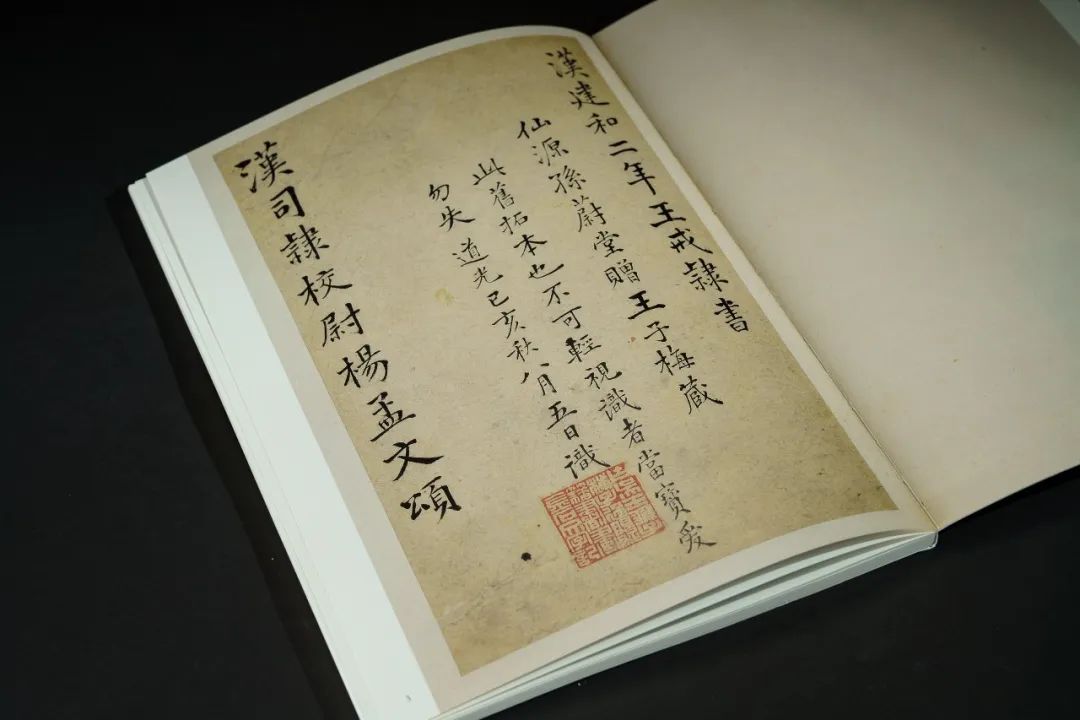 漢建和二年王戒隸書
仙源孫蔚堂贈王子梅藏
此舊拓本也不可輕視識者當寶爱
勿失道光己亥秋八月五日識
漢司隸校尉楊孟文頌